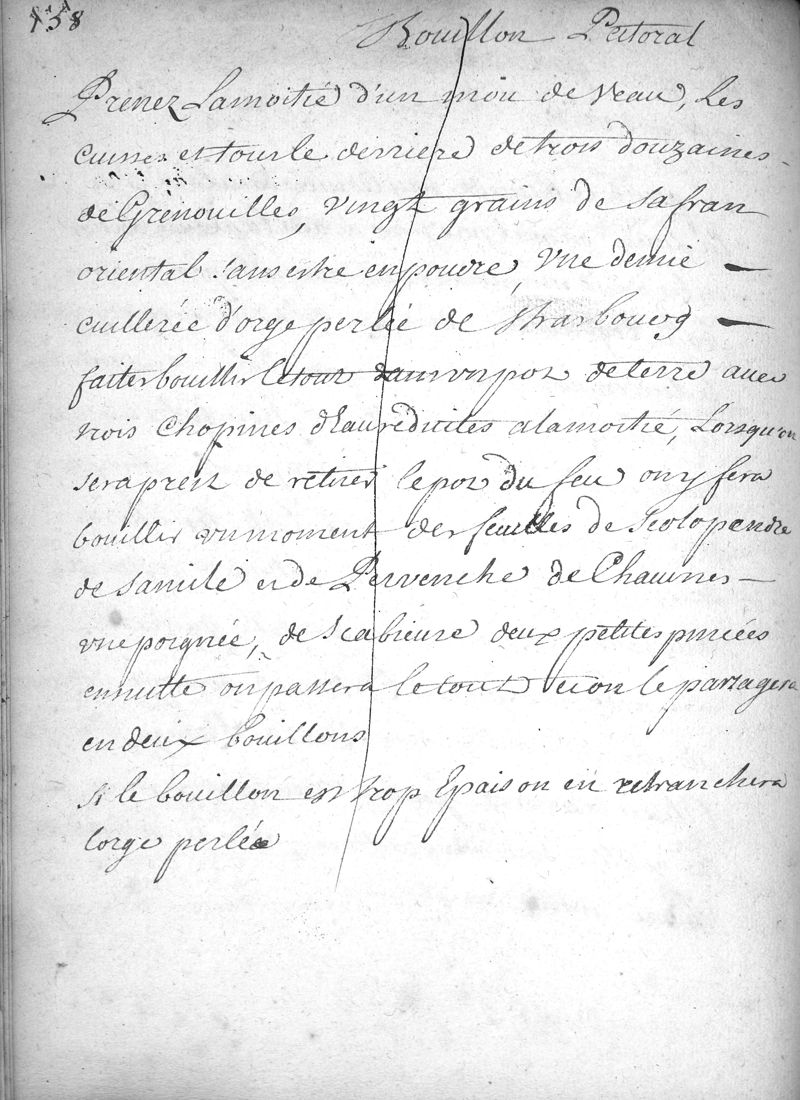 158
Bouillon Pectoral
Prenez Lamoitié d'un mou de Veau, Les
cuisses et tout le derriere de trois douzaines
de Grenouilles, vingt grains de safran
oriental sans estre en poudre, Vne demie
cuillerée d'orge perlée de Strasbourg
faites bouillir le tout dans un pot de terre avec
trois chopines d'Eau reduites a la moitié, Lorsqu'on
sera prest de retirer le pot du feu on y fera
bouillir un moment des feuilles de Scolopendre
de sanicle et de Pervenche de Chacunes
vne poignée, de Scabieuse deux petites pincées
ensuitte on passera le tout et on le partagera
en deux bouillons
Si le bouillon est trop Epais on en retranchera
l'orge perlée